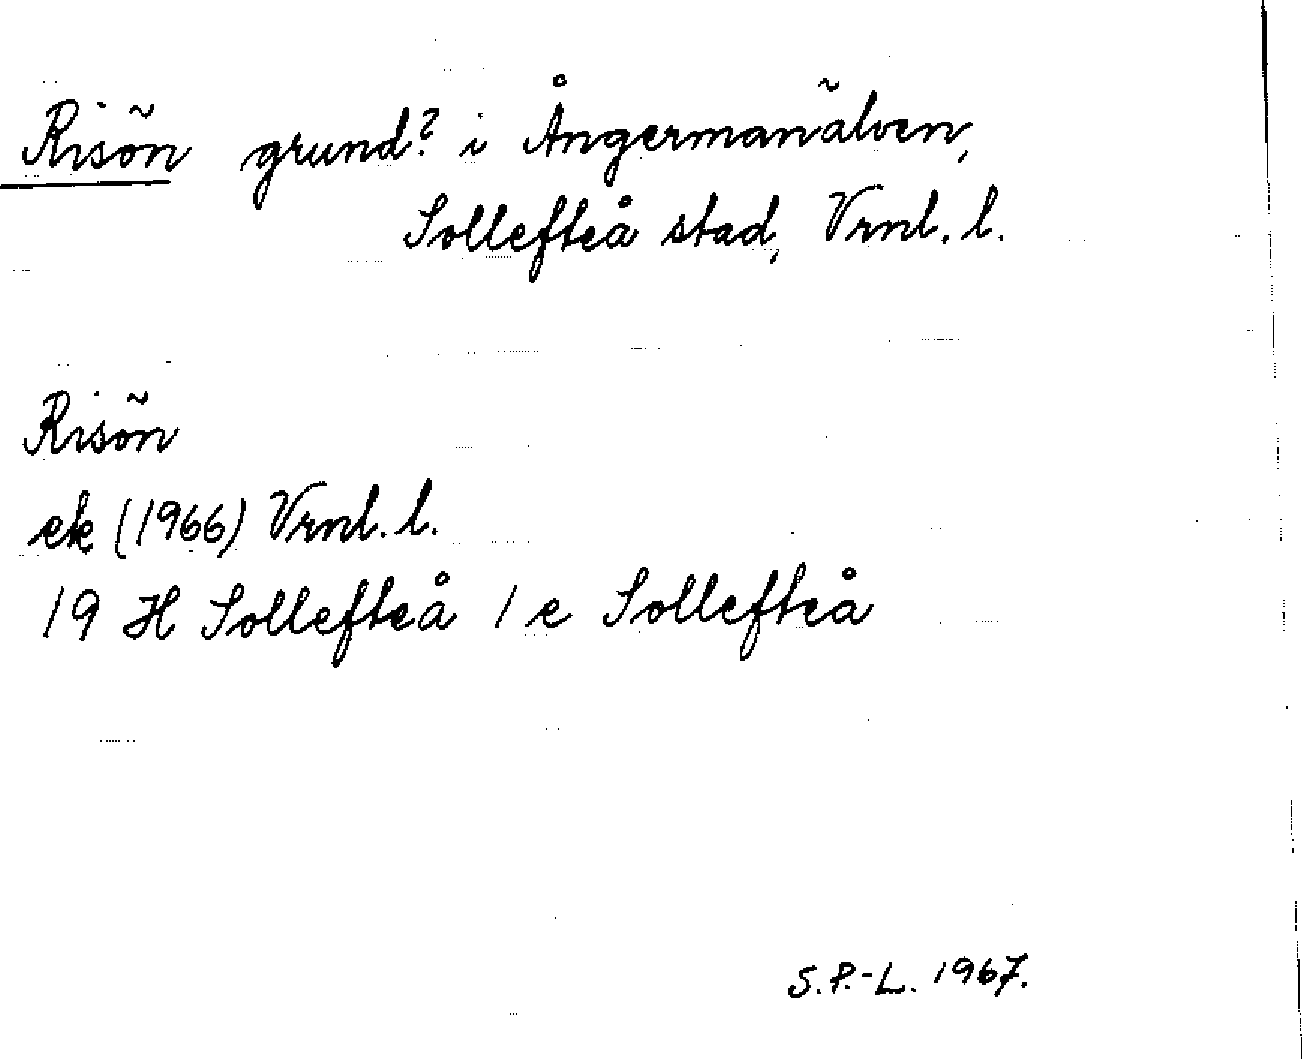 Risön grund? i Ångermanälven,
Sollefteå stad, Vrnl. l.
Risön
ek (1966) Vrnl. l.
19 H Sollefteå 1 e Sollefteå
S.P.-L. 1967.